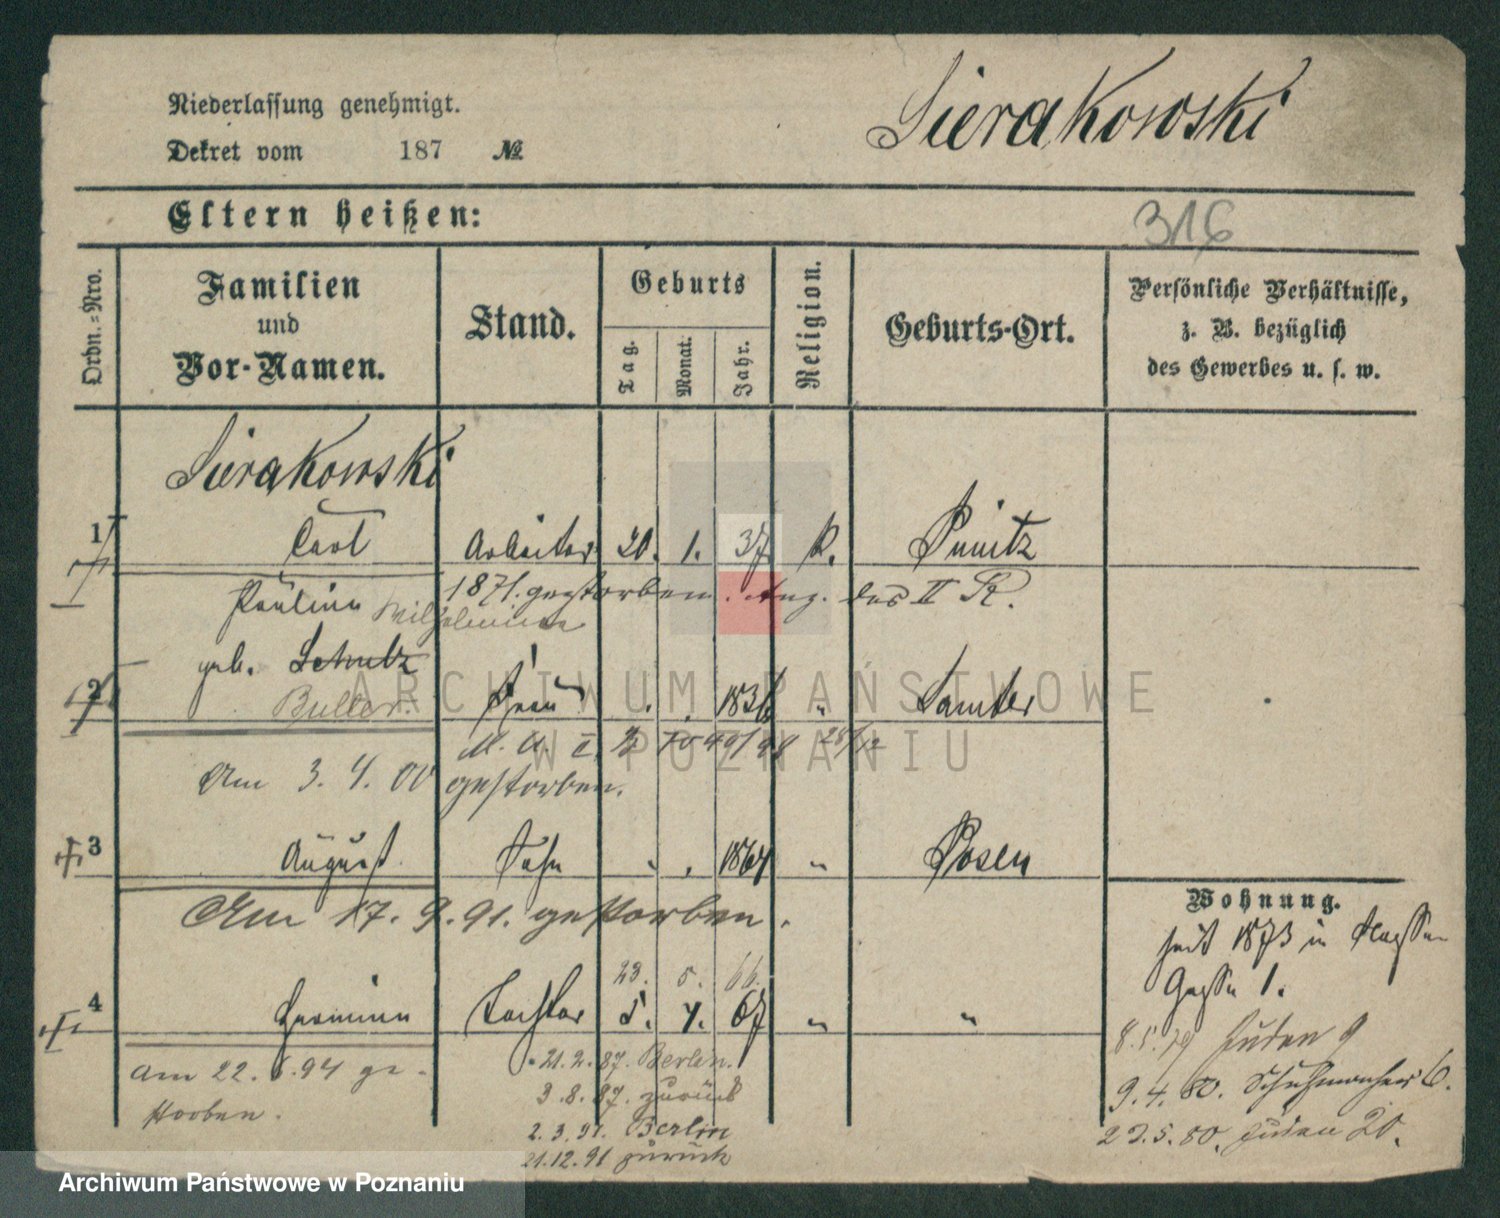 Niederlassung genehmigt.
Sierakowski
Dekret vom 187 №
Eltern heißen:
316
Ordn.-Nro.
Familien
und
Vor-Namen.
Stand.
Geburts
Tag.
Monat.
Jahr.
Religion.
Geburts-Ort.
Persönliche Verhältnisse,
z. B. bezüglich
des Gewerbes u. s. w.
Sierakowski
1 Carl Arbeiter 20. 1. 37 k. Punitz
1871. gestorben. Ang. des II R.
Pauline Wilhelmine
geb. Schultz
Buller
2 Frau . . 1836 " Samter
28/12
Am 3. 4. 00 gestorben.
3 August Sohn . . 1864 " Posen
Am 17. 9. 91. gestorben.
23. 5. 66.
4 Hermine Tochter 5. 4. 67 " "
Am 22. 6. 94 ge-
storben.
21.2.87. Berlin.
3.8.87. zurück
2.3.91. Berlin
21.12.91 zurück
Wohnung.
seit 1873 in
Gasse 1.
8.5.79 Juden 9
9.4.80. Schuhmacher 6.
23.5.80. Juden 20.
ARCHIWUM PAŃSTWOWE
W POZNANIU
Archiwum Państwowe w Poznaniu